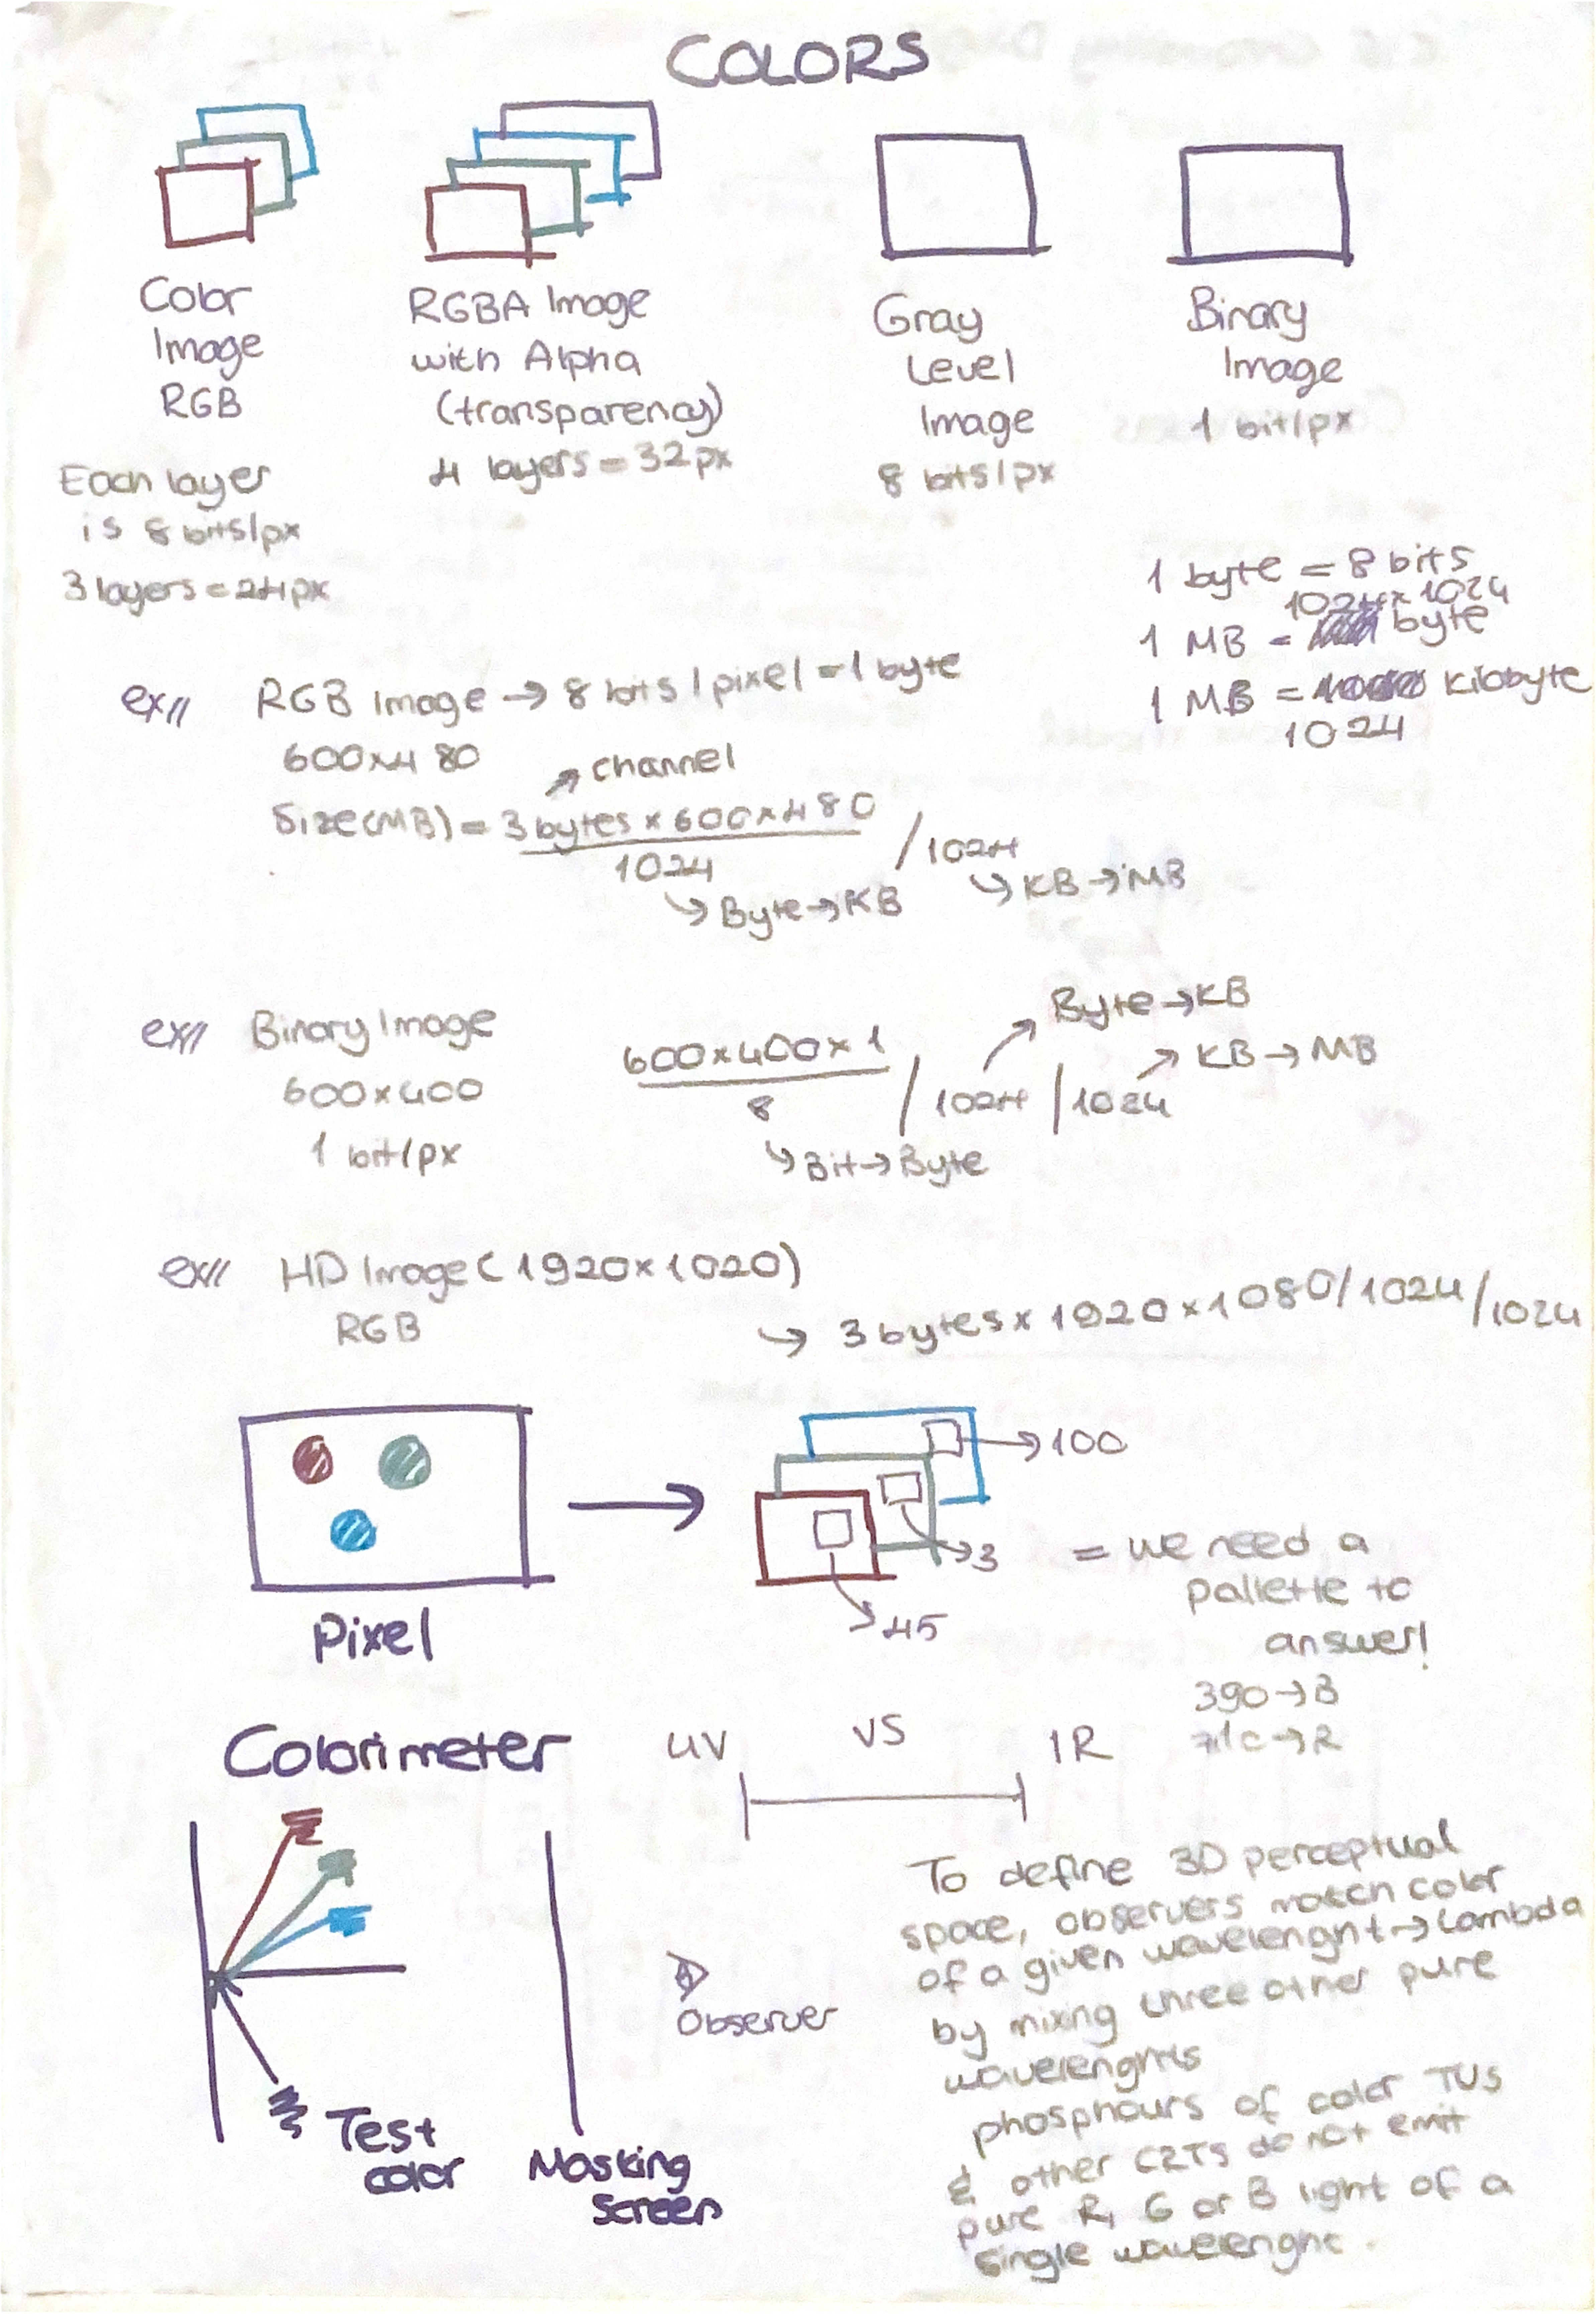 COLORS
Color
Image
RGB
Each layer
is 8 bits/px
3 layers = 24px
RGBA Image
with Alpha
(transparency)
4 layers = 32px
Gray
Level
Image
8 bits/px
Binary
Image
1 bit/px
1 byte = 8 bits
1024x1024
1 MB = byte
1 MB = kilobyte
1024
ex// RGB Image → 8 bits / pixel = 1 byte
600x480
↗ channel
Size(MB) = 3 bytes x 600x480
1024
/ 1024
↘ Byte→KB
↘ KB→MB
ex// Binary Image
600x400
1 bit/px
600x400x1
8
/ 1024 / 1024
↗ Byte→KB
↗ KB→MB
↘ Bit→Byte
ex// HD Image (1920x1020)
RGB
↘ 3 bytes x 1920x1080/1024/1024
Pixel
→100
→3
→45
= we need a
pallette to
answer!
390→B
→R
Colorimeter
UV VS IR
Test
color
Masking
Screen
Observer
To define 3D perceptual
space, observers match color
of a given wavelenght→Lambda
by mixing three other pure
wavelenghts
phosphours of color TVs
& other CRTs do not emit
pure R, G or B light of a
single wavelenght.